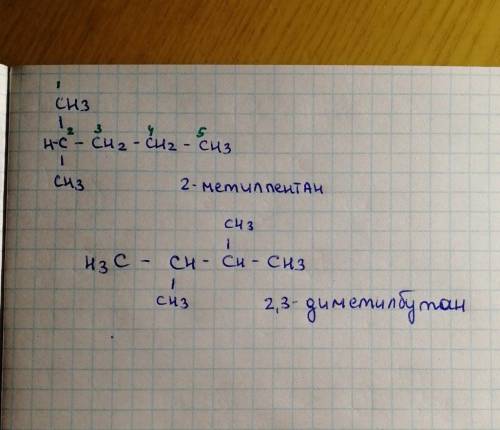 1
CH3
H-C2 - 3CH2 - 4CH2 - 5CH3
CH3
2-метилпентан
CH3
H3C - CH - CH - CH3
CH3
2,3-диметилбутан